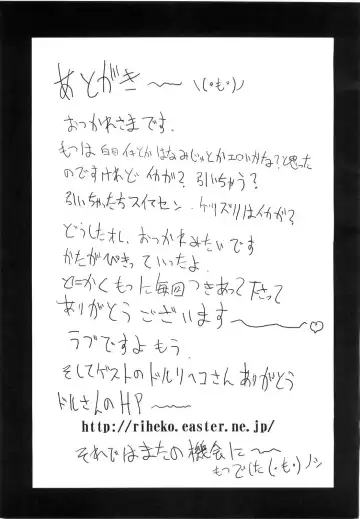 あとがき〜〜 \(・も・)ノ
おつかれさまです.
もつは白目イキとかはなみずとかエロいかな?と思った
のですけれど イカが? 引いちゃう?
引いちゃったらスイマセン. ケズリはイカが?
どうしたオレ、おつかれみたいです
かたがぴきっていったよ.
とにかくもつに毎回つきあって下さって
ありがとうございます〜〜♡
ラブですよ もう.
そしてゲストのドルリヘコさんありがとう
ドルさんのHP〜〜
http://riheko.easter.ne.jp/
それではまたの機会に〜〜
もつでした(・も・)ノシ